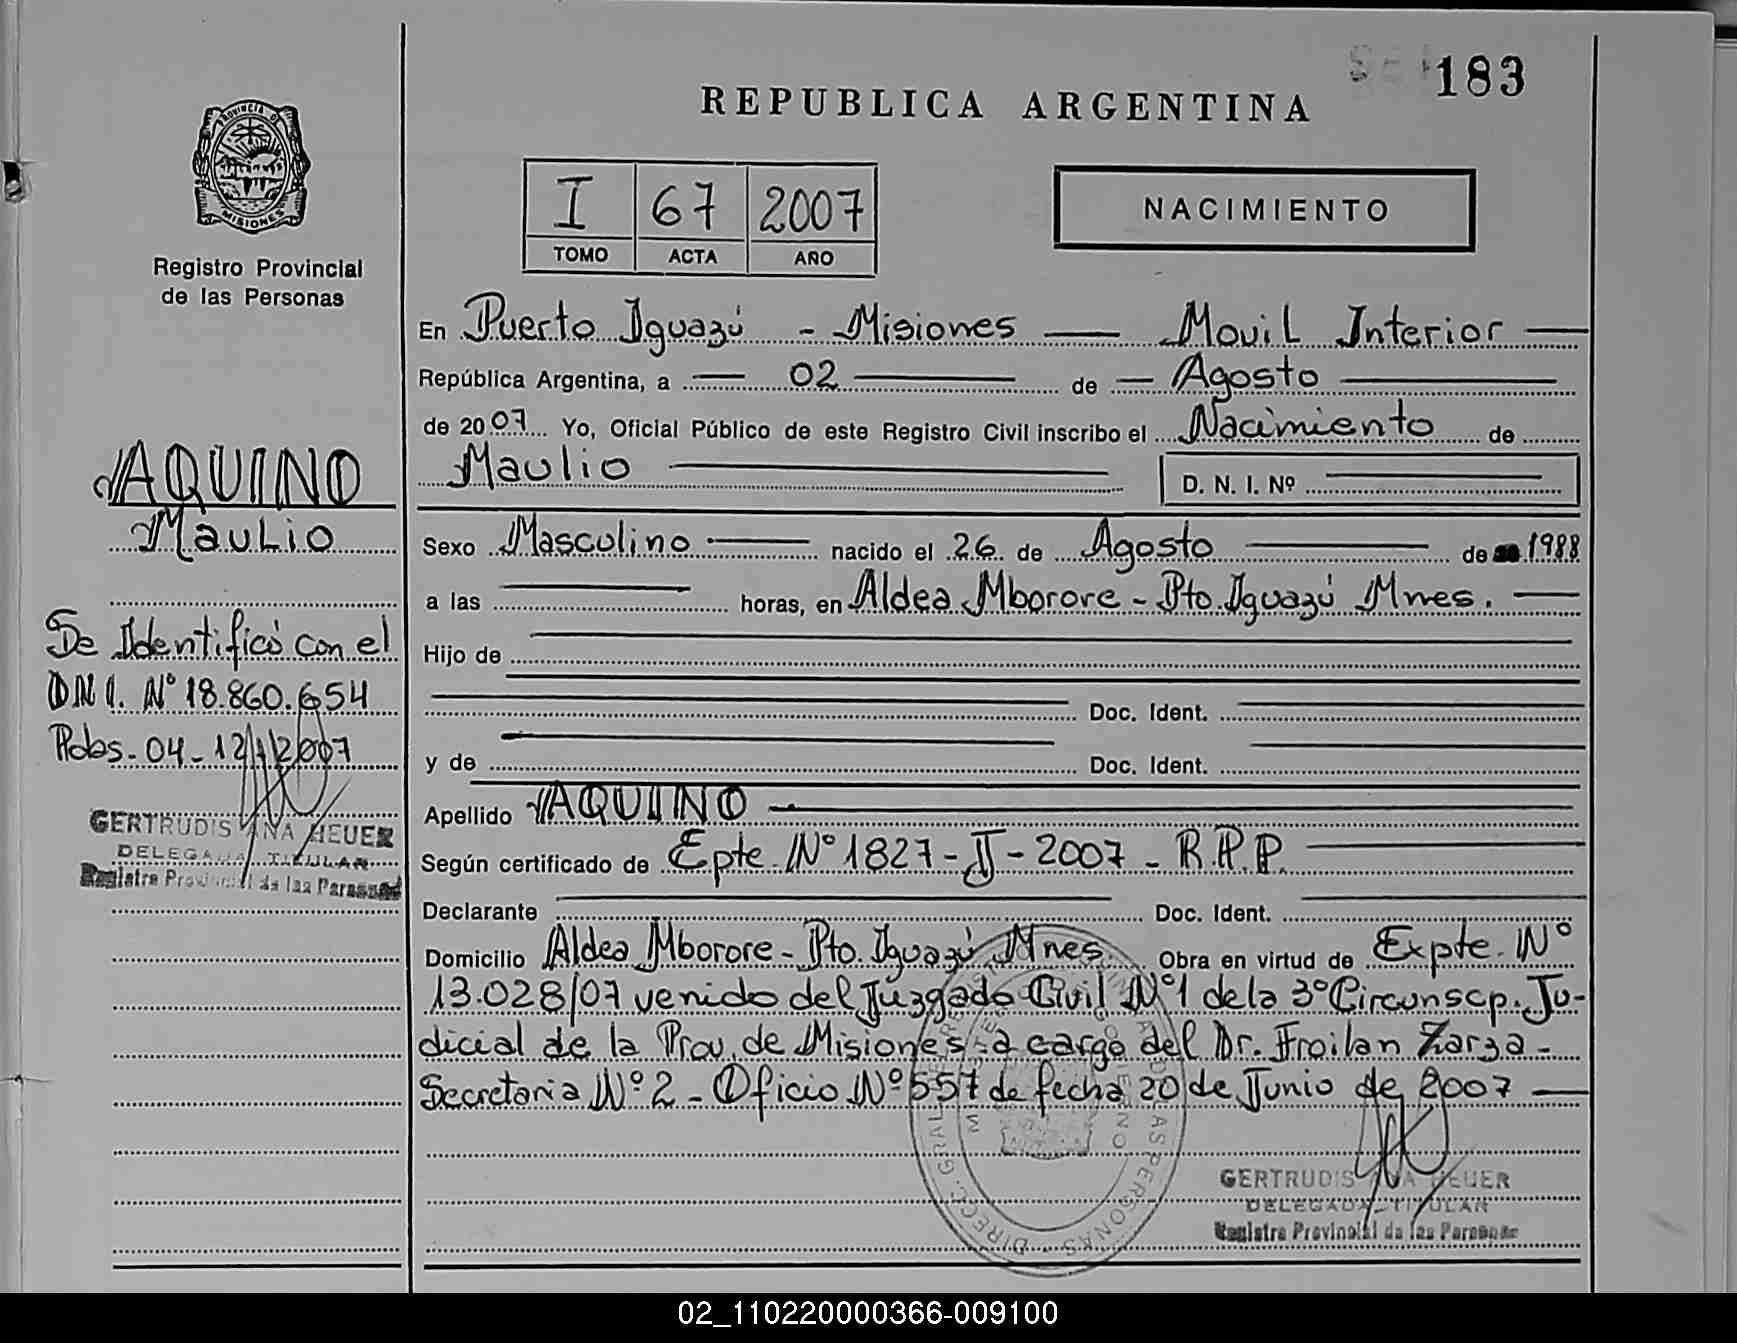 183
REPUBLICA ARGENTINA
PROVINCIA DE
MISIONES
Registro Provincial
de las Personas
I 67 2007
TOMO ACTA AÑO
NACIMIENTO
En Puerto Iguazú - Misiones — Movil Interior —
República Argentina, a — 02 — de — Agosto —
de 2007 Yo, Oficial Público de este Registro Civil inscribo el Nacimiento de
Maulio —
D. N. I. Nº —
Sexo Masculino — nacido el 26 de Agosto — de 1988
a las — horas, en Aldea Mborore - Pto. Iguazú Mnes. —
Hijo de —
— Doc. Ident. —
y de — Doc. Ident. —
Apellido AQUINO —
Según certificado de Epte. Nº 1827-J-2007 - R.P.P. —
Declarante — Doc. Ident. —
Domicilio Aldea Mborore - Pto. Iguazú Mnes. Obra en virtud de Expte. Nº
13.028/07 venido del Juzgado Civil Nº 1 de la 3º Circunscp. Ju-
dicial de la Prov. de Misiones a cargo del Dr. Froilan Zarza -
Secretaria Nº 2 - Oficio Nº 557 de fecha 20 de Junio de 2007 —
GERTRUDIS ANA HEUER
DELEGADA TITULAR
Registro Provincial de las Personas
AQUINO
Maulio
Se Identificó con el
D.N.I. Nº 18.860.654
Pdas. 04-12/12007
GERTRUDIS ANA HEUER
DELEGADA TITULAR
Registro Provincial de las Personas
02_110220000366-009100